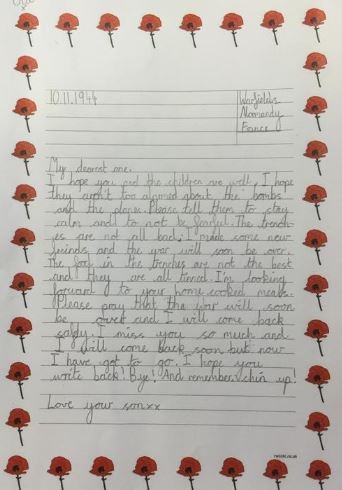 10.11.1944
Warfields
Normandy
France
My dearest one.
I hope you and the children are well, I hope
they aren't too alarmed about the bombs
and the planes. Please tell them to stay
calm and to not be fearful. The trench-
es are not all bad; I made some new
friends and the war will soon be over.
The food in the trenches are not the best
and they are all tinned. I'm looking
forward to your home cooked meals.
Please pray that the war will soon
be over and I will come back
safely. I miss you so much and
I will come back soon but now
I have got to go. I hope you
write back! Bye! And remember, chin up!
Love your son xx